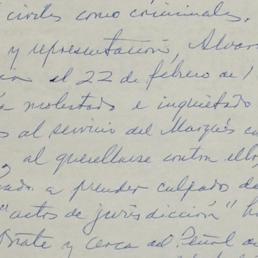 civiles como criminales,
y representación, Alvaro
el 22 de febrero de 1
molestado e inquietado
al servicio del Marqués
al querellarse contra ellos
a prender culpado de
"actos de jurisdicción"
Oñate y cerca del Peñol de